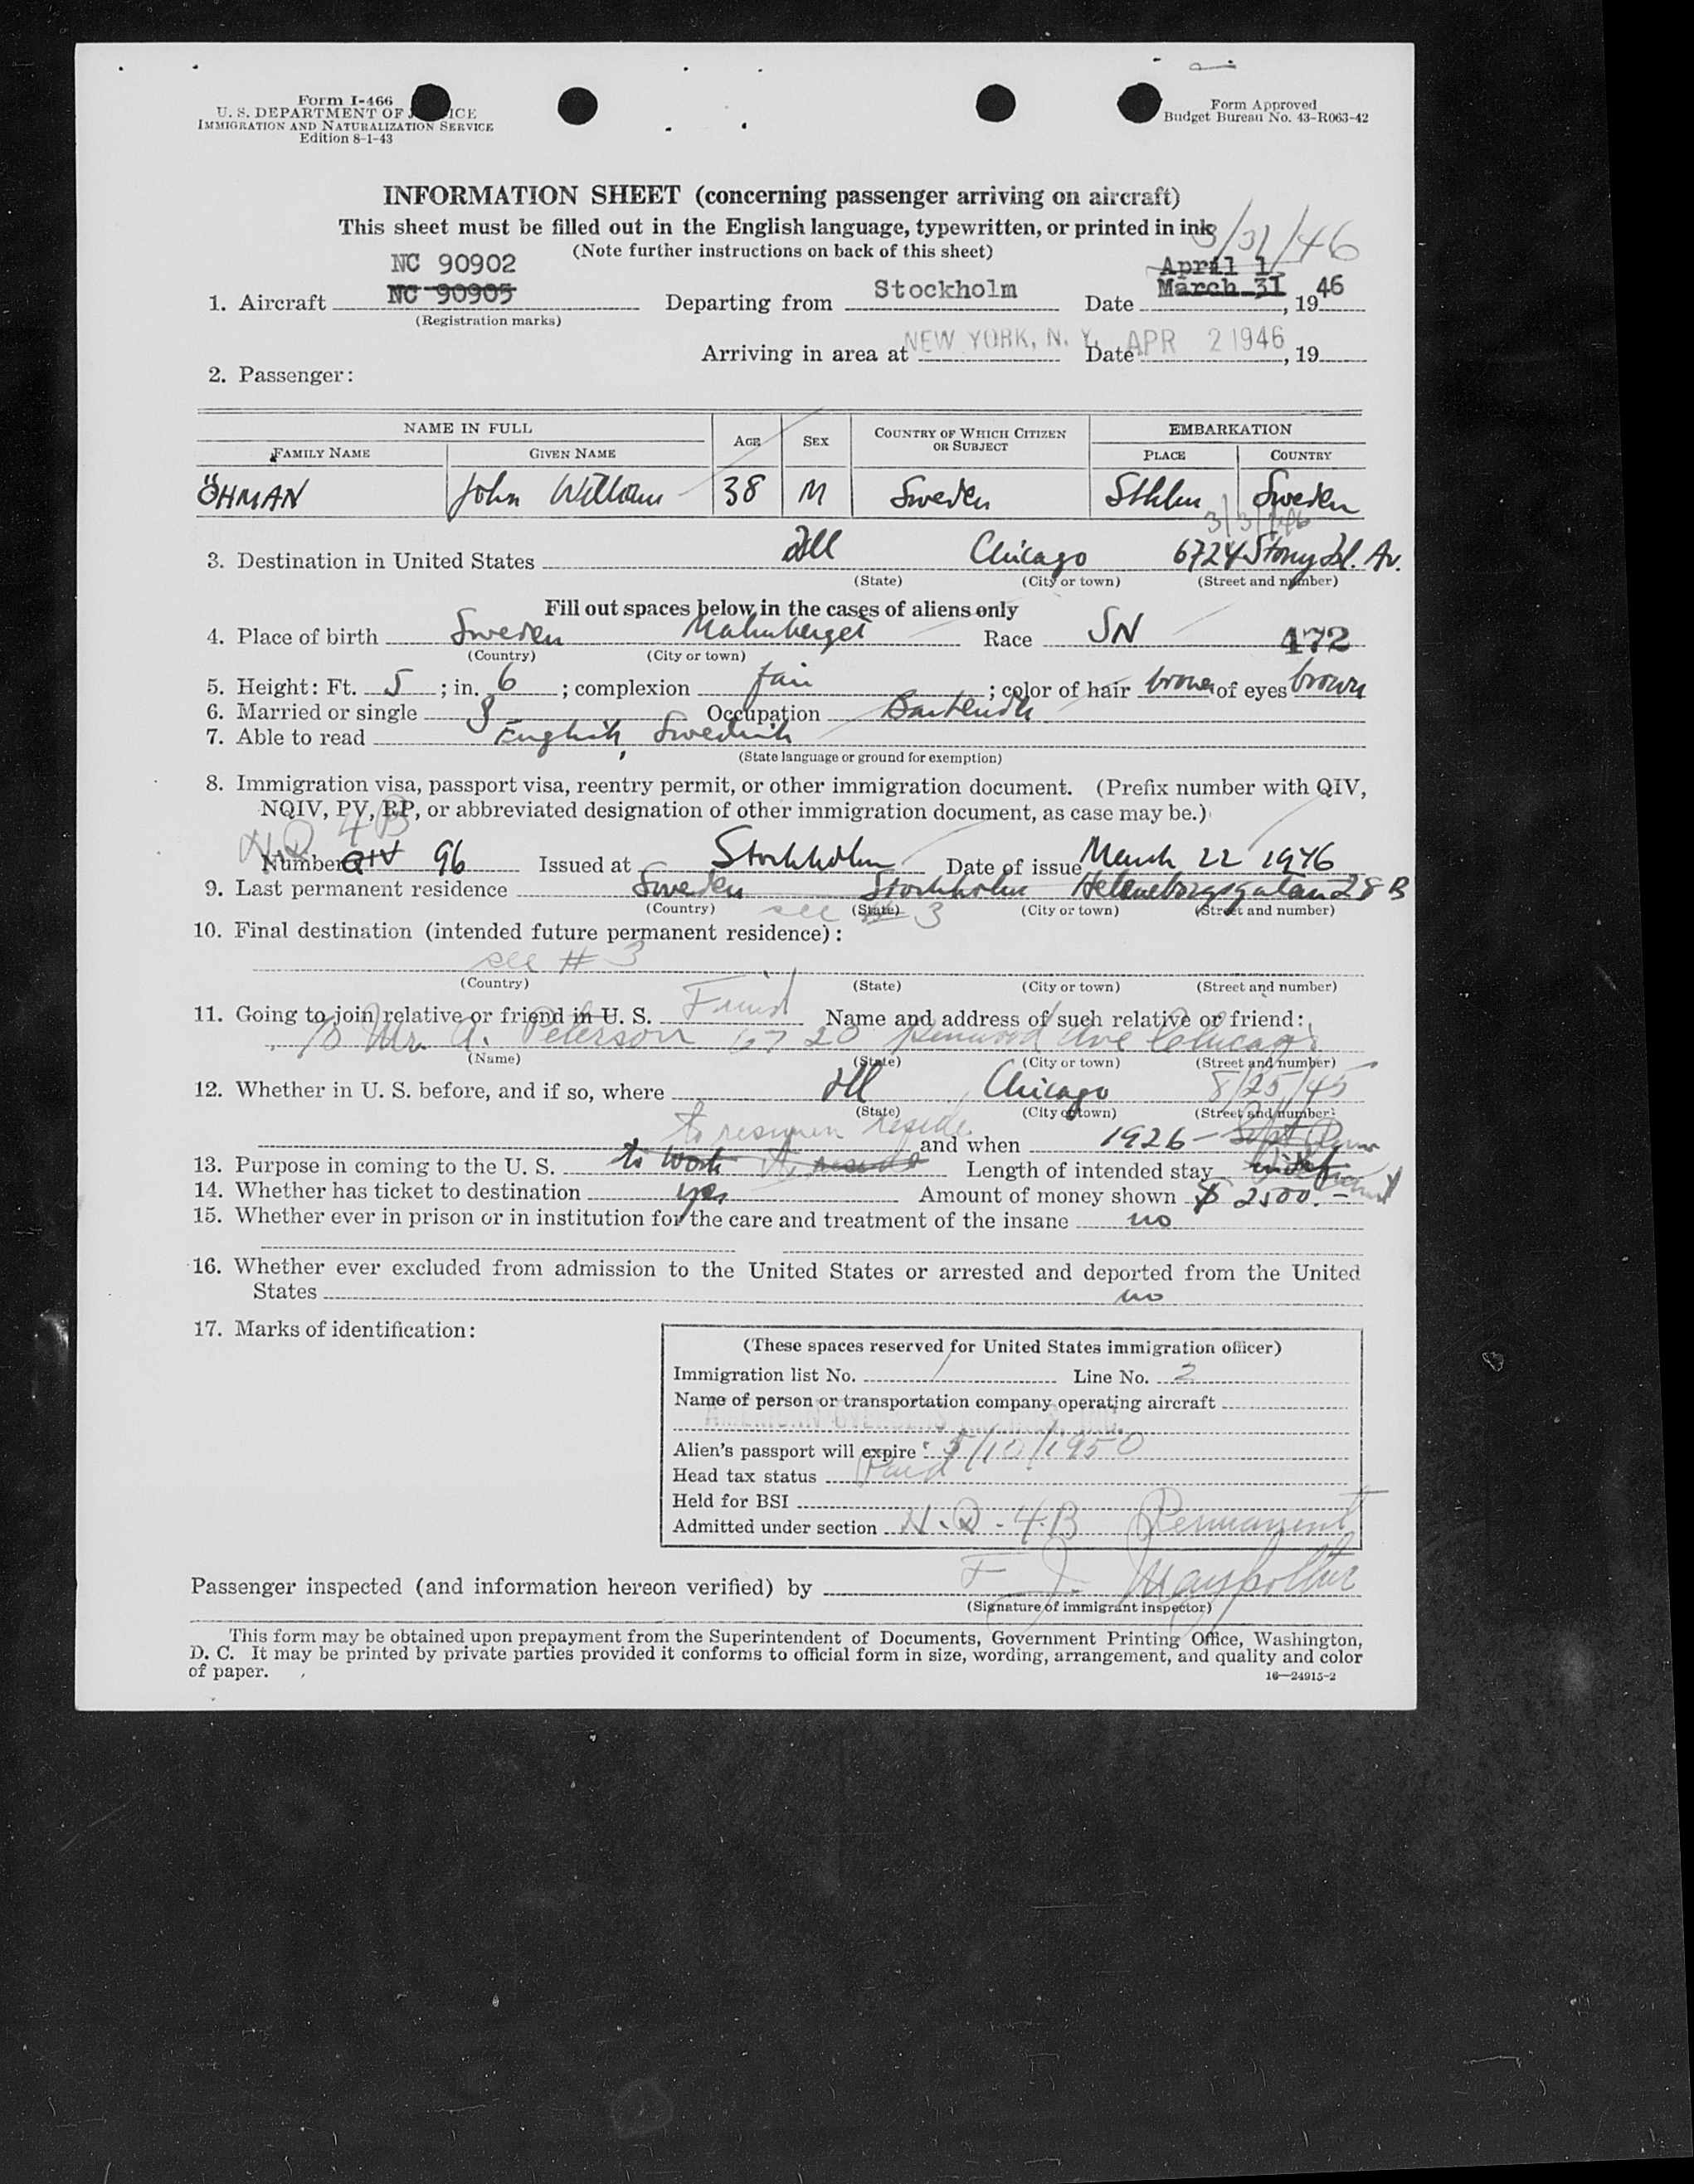 Form I-466
U. S. DEPARTMENT OF J ICE
IMMIGRATION AND NATURALIZATION SERVICE
Edition 8-1-43
Form Approved
Budget Bureau No. 43-R063-42
INFORMATION SHEET (concerning passenger arriving on aircraft)
This sheet must be filled out in the English language, typewritten, or printed in ink
(Note further instructions on back of this sheet)
3/31/46
NC 90902
April 1
1. Aircraft NC 90905 Departing from Stockholm Date March 31, 1946
(Registration marks)
Arriving in area at NEW YORK, N. Y. Date APR 2 1946, 19
2. Passenger:
NAME IN FULL AGE SEX COUNTRY OF WHICH CITIZEN OR SUBJECT EMBARKATION
FAMILY NAME GIVEN NAME PLACE COUNTRY
ÖHMAN John William 38 M Sweden Sthlm Sweden
3/31/46
3. Destination in United States Ill Chicago 6724 Stony Isl. Av.
(State) (City or town) (Street and number)
Fill out spaces below in the cases of aliens only
4. Place of birth Sweden Malmberget Race SN 472
(Country) (City or town)
5. Height: Ft. 5; in. 6; complexion fair; color of hair brown of eyes brown
6. Married or single S Occupation Bartender
7. Able to read English, Swedish
(State language or ground for exemption)
8. Immigration visa, passport visa, reentry permit, or other immigration document. (Prefix number with QIV,
NQIV, PV, RP, or abbreviated designation of other immigration document, as case may be.)
NQ 4B
Number QIV 96 Issued at Stockholm Date of issue March 22 1946
9. Last permanent residence Sweden Stockholm Heleneborgsgatan 28 B
(Country) see # 3 (State) (City or town) (Street and number)
10. Final destination (intended future permanent residence):
see # 3
(Country) (State) (City or town) (Street and number)
11. Going to join relative or friend in U. S. Friend Name and address of such relative or friend:
To Mr. A. Peterson 6720 Ave Chicago
(Name) (State) (City or town) (Street and number)
12. Whether in U. S. before, and if so, where Ill Chicago 8/25/45
(State) (City or town) (Street and number)
to reside and when 1926 -
13. Purpose in coming to the U. S. to work to reside Length of intended stay
14. Whether has ticket to destination yes Amount of money shown $ 2500.-
15. Whether ever in prison or in institution for the care and treatment of the insane no
16. Whether ever excluded from admission to the United States or arrested and deported from the United
States no
17. Marks of identification:
(These spaces reserved for United States immigration officer)
Immigration list No. 1 Line No. 2
Name of person or transportation company operating aircraft
AMERICAN OVERSEAS AIRLINES, INC.
Alien's passport will expire 5/10/1950
Head tax status Paid
Held for BSI
Admitted under section N.Q. - 4B Permanent
Passenger inspected (and information hereon verified) by F J.
(Signature of immigrant inspector)
This form may be obtained upon prepayment from the Superintendent of Documents, Government Printing Office, Washington,
D. C. It may be printed by private parties provided it conforms to official form in size, wording, arrangement, and quality and color
of paper.
16—24915-2